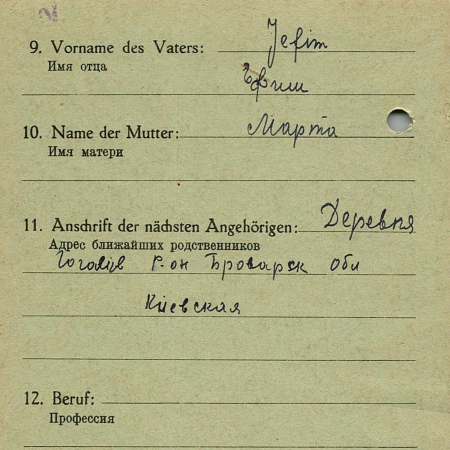 9. Vorname des Vaters: Jefim
Имя отца
Ефим
10. Name der Mutter: Марта
Имя матери
11. Anschrift der nächsten Angehörigen: Деревня
Адрес ближайших родственников
Гоголив Р-он Броварск Обл
Киевская
12. Beruf:
Профессия